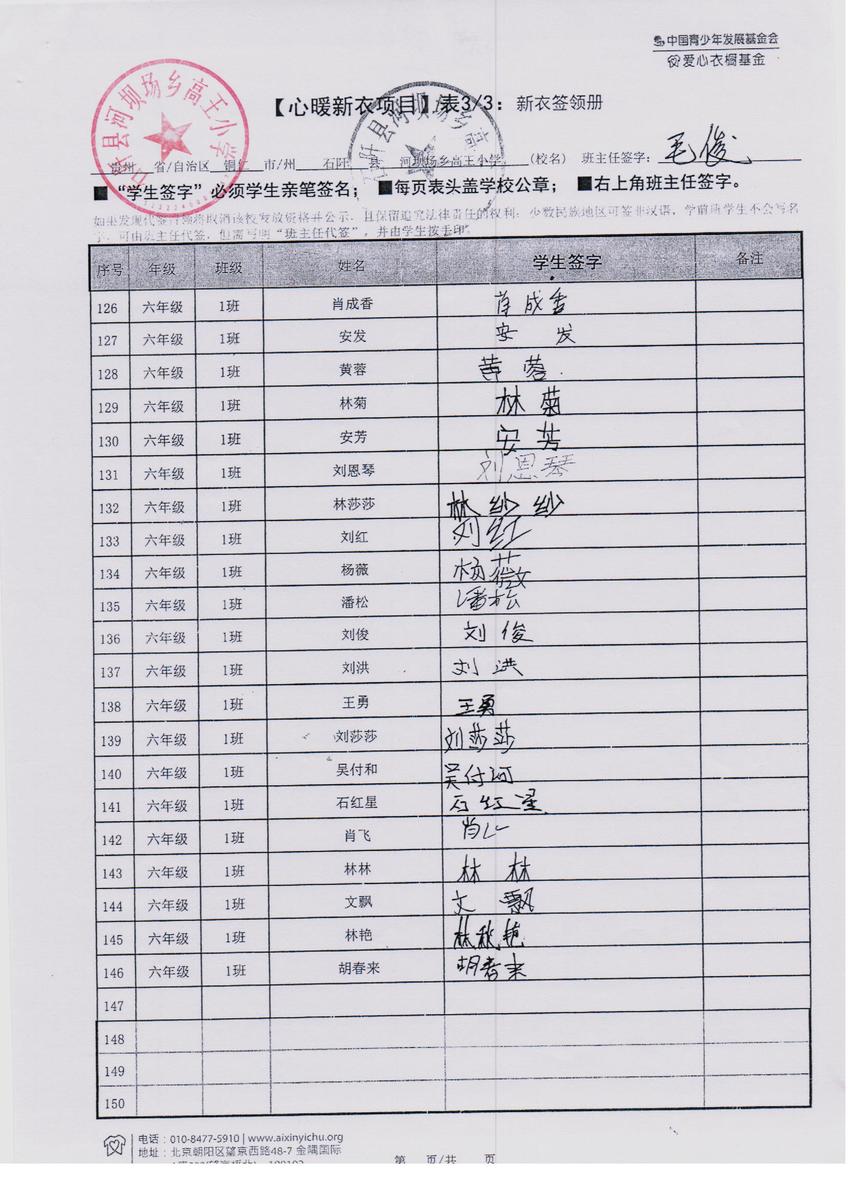 中国青少年发展基金会
爱心衣橱基金
石阡县河坝场乡高王小学
石阡县河坝场乡高
【心暖新衣项目】表3/3：新衣签领册
贵州 省/自治区 铜仁 市/州 石阡 县 河坝场乡高王小学 (校名) 班主任签字：毛俊
■“学生签字”必须学生亲笔签名；■每页表头盖学校公章；■右上角班主任签字。
如果发现代签 将取消该校发放资格并公示，且保留追究法律责任的权利；少数民族地区可签非汉语，学前班学生不会写名
字，可由班主任代签，但需写明“班主任代签”，并由学生按手印。
序号 年级 班级 姓名 学生签字 备注
126 六年级 1班 肖成香 肖成香
127 六年级 1班 安发 安 发
128 六年级 1班 黄蓉 黄 蓉
129 六年级 1班 林菊 林 菊
130 六年级 1班 安芳 安 芳
131 六年级 1班 刘恩琴 刘恩琴
132 六年级 1班 林莎莎 林 纱 纱
133 六年级 1班 刘红 刘红
134 六年级 1班 杨薇 杨薇
135 六年级 1班 潘松 潘松
136 六年级 1班 刘俊 刘 俊
137 六年级 1班 刘洪 刘 洪
138 六年级 1班 王勇 王勇
139 六年级 1班 刘莎莎 刘莎莎
140 六年级 1班 吴付和 吴付河
141 六年级 1班 石红星 石红星
142 六年级 1班 肖飞 肖飞
143 六年级 1班 林林 林 林
144 六年级 1班 文飘 文 飘
145 六年级 1班 林艳 林秋艳
146 六年级 1班 胡春来 胡春来
147
148
149
150
电话：010-8477-5910 | www.aixinyichu.org
地址：北京朝阳区望京西路48-7 金隅国际
第 页/共 页